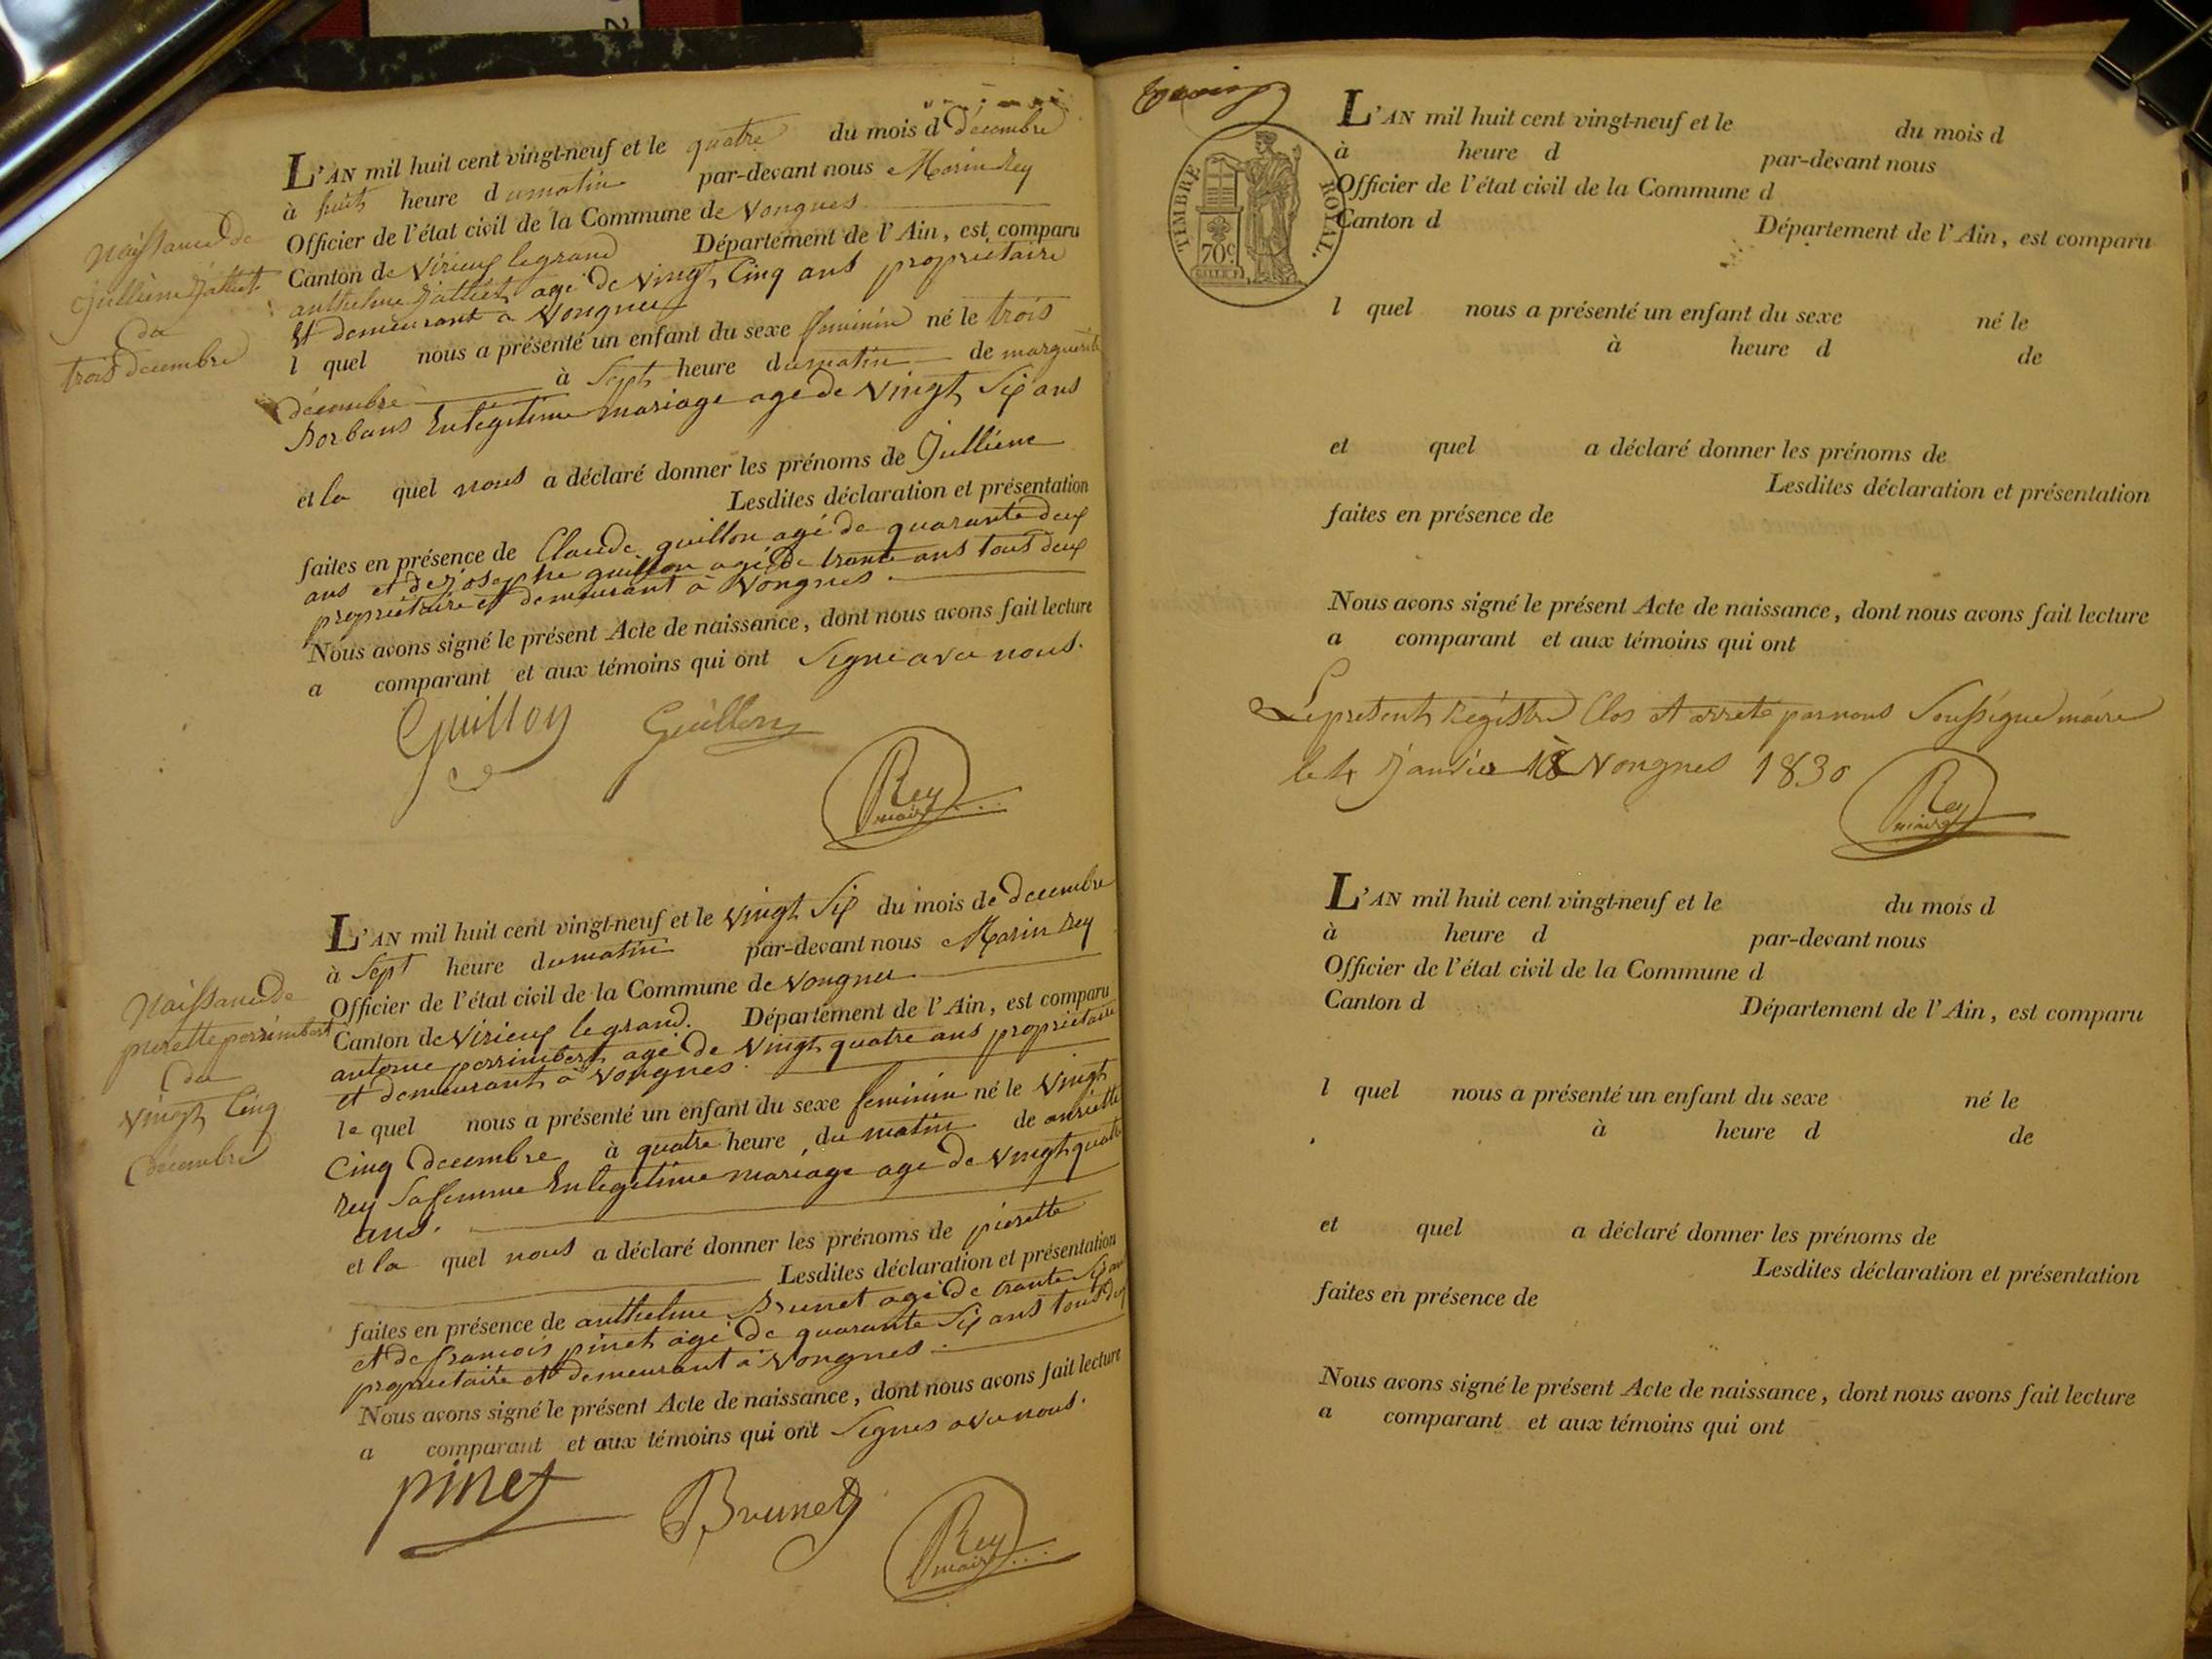 L'AN mil huit cent vingt-neuf et le quatre du mois d décembre
à huit heure d umatin par-devant nous Marin Rey
Officier de l'état civil de la Commune de Vongnes
Canton de Virieux legrand Département de l'Ain, est comparu
anthelme agé de vingt Cinq ans propriétaire
Et demeurant a Vongnes
l quel nous a présenté un enfant du sexe feminin né le trois
décembre à Sept heure dumatin de marguerite
Enlegitime mariage age de vingt Six ans
et la quel nous a déclaré donner les prénoms de Jullienne
Lesdites déclaration et présentation
faites en présence de Claude guillon agé de quarante deux
ans et de josephe guillon agé de trante ans tous deux
proprietaire et demeurant à Vongnes.
Nous avons signé le présent Acte de naissance, dont nous avons fait lecture
a comparant et aux témoins qui ont Signé avec nous.
Guillon Guillon
Rey
maire
Naissance de
Jullienne
du
trois decembre
L'AN mil huit cent vingt-neuf et le vingt Six du mois de decembre
à Sept heure dumatin par-devant nous Marin Rey
Officier de l'état civil de la Commune de Vongnes
Canton de Virieux legrand. Département de l'Ain, est comparu
antoine perrimbert agé de Vingt quatre ans propriétaire
et demeurant à Vongnes.
le quel nous a présenté un enfant du sexe feminin né le Vingt
Cinq decembre à quatre heure du matin de anriette
Rey Saffemme Enlegitime mariage age de Vingtquatre
ans.
et la quel nous a déclaré donner les prénoms de pierette
Lesdites déclaration et présentation
faites en présence de anthelme Brunet agé de trante Six ans
et de françois pinet agé de quarante Six ans tous deux
proprietaire et demeurant à Vongnes.
Nous avons signé le présent Acte de naissance, dont nous avons fait lecture
a comparant et aux témoins qui ont Signes avec nous.
pinet Brunet
Rey
maire
Naissance de
pierette perrimbert
du
vingt Cinq
decembre
TIMBRE ROYAL.
70c
L'AN mil huit cent vingt-neuf et le du mois d
à heure d par-devant nous
Officier de l'état civil de la Commune d
Canton d Département de l'Ain, est comparu
l quel nous a présenté un enfant du sexe né le
à heure d de
et quel a déclaré donner les prénoms de
Lesdites déclaration et présentation
faites en présence de
Nous avons signé le présent Acte de naissance, dont nous avons fait lecture
a comparant et aux témoins qui ont
Lepresent Régistre Clos et arreté parnous Soussigné maire
le 4 Janvier à Vongnes 1830
Rey
maire
L'AN mil huit cent vingt-neuf et le du mois d
à heure d par-devant nous
Officier de l'état civil de la Commune d
Canton d Département de l'Ain, est comparu
l quel nous a présenté un enfant du sexe né le
à heure d de
et quel a déclaré donner les prénoms de
Lesdites déclaration et présentation
faites en présence de
Nous avons signé le présent Acte de naissance, dont nous avons fait lecture
a comparant et aux témoins qui ont